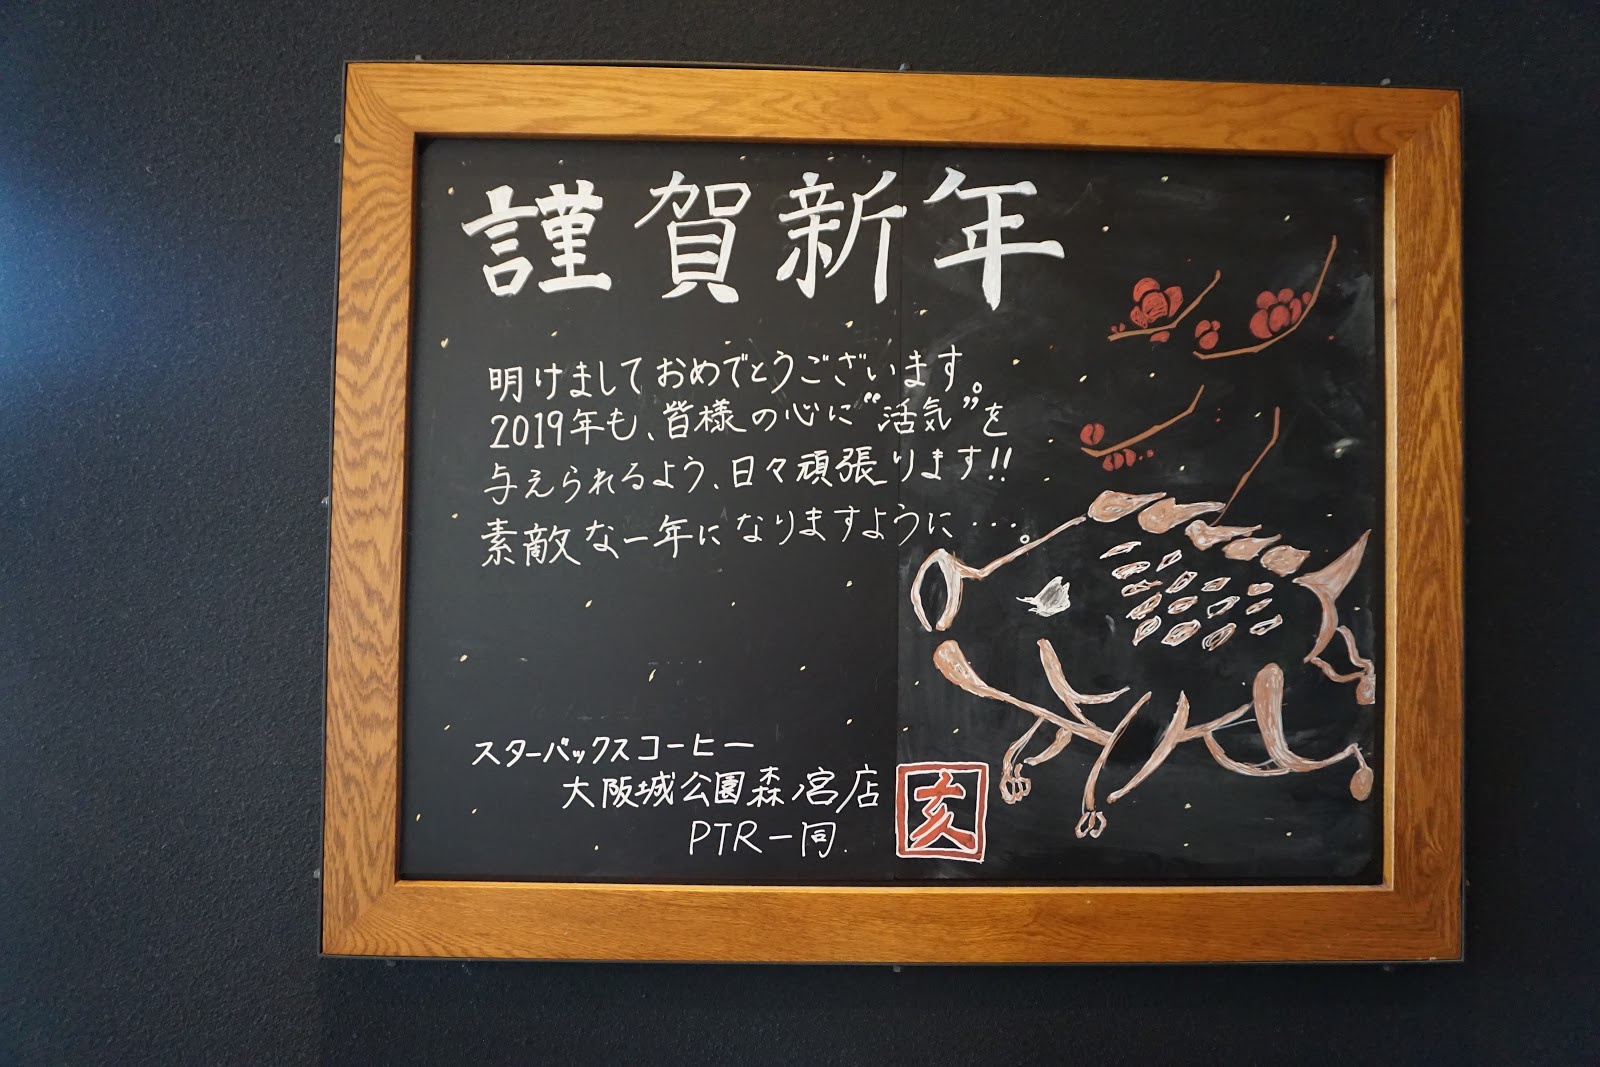 謹賀新年
明けましておめでとうございます。
2019年も、皆様の心に“活気”を
与えられるよう、日々頑張ります!!
素敵な一年になりますように・・・。
スターバックスコーヒー
大阪城公園森ノ宮店
PTR一同
亥